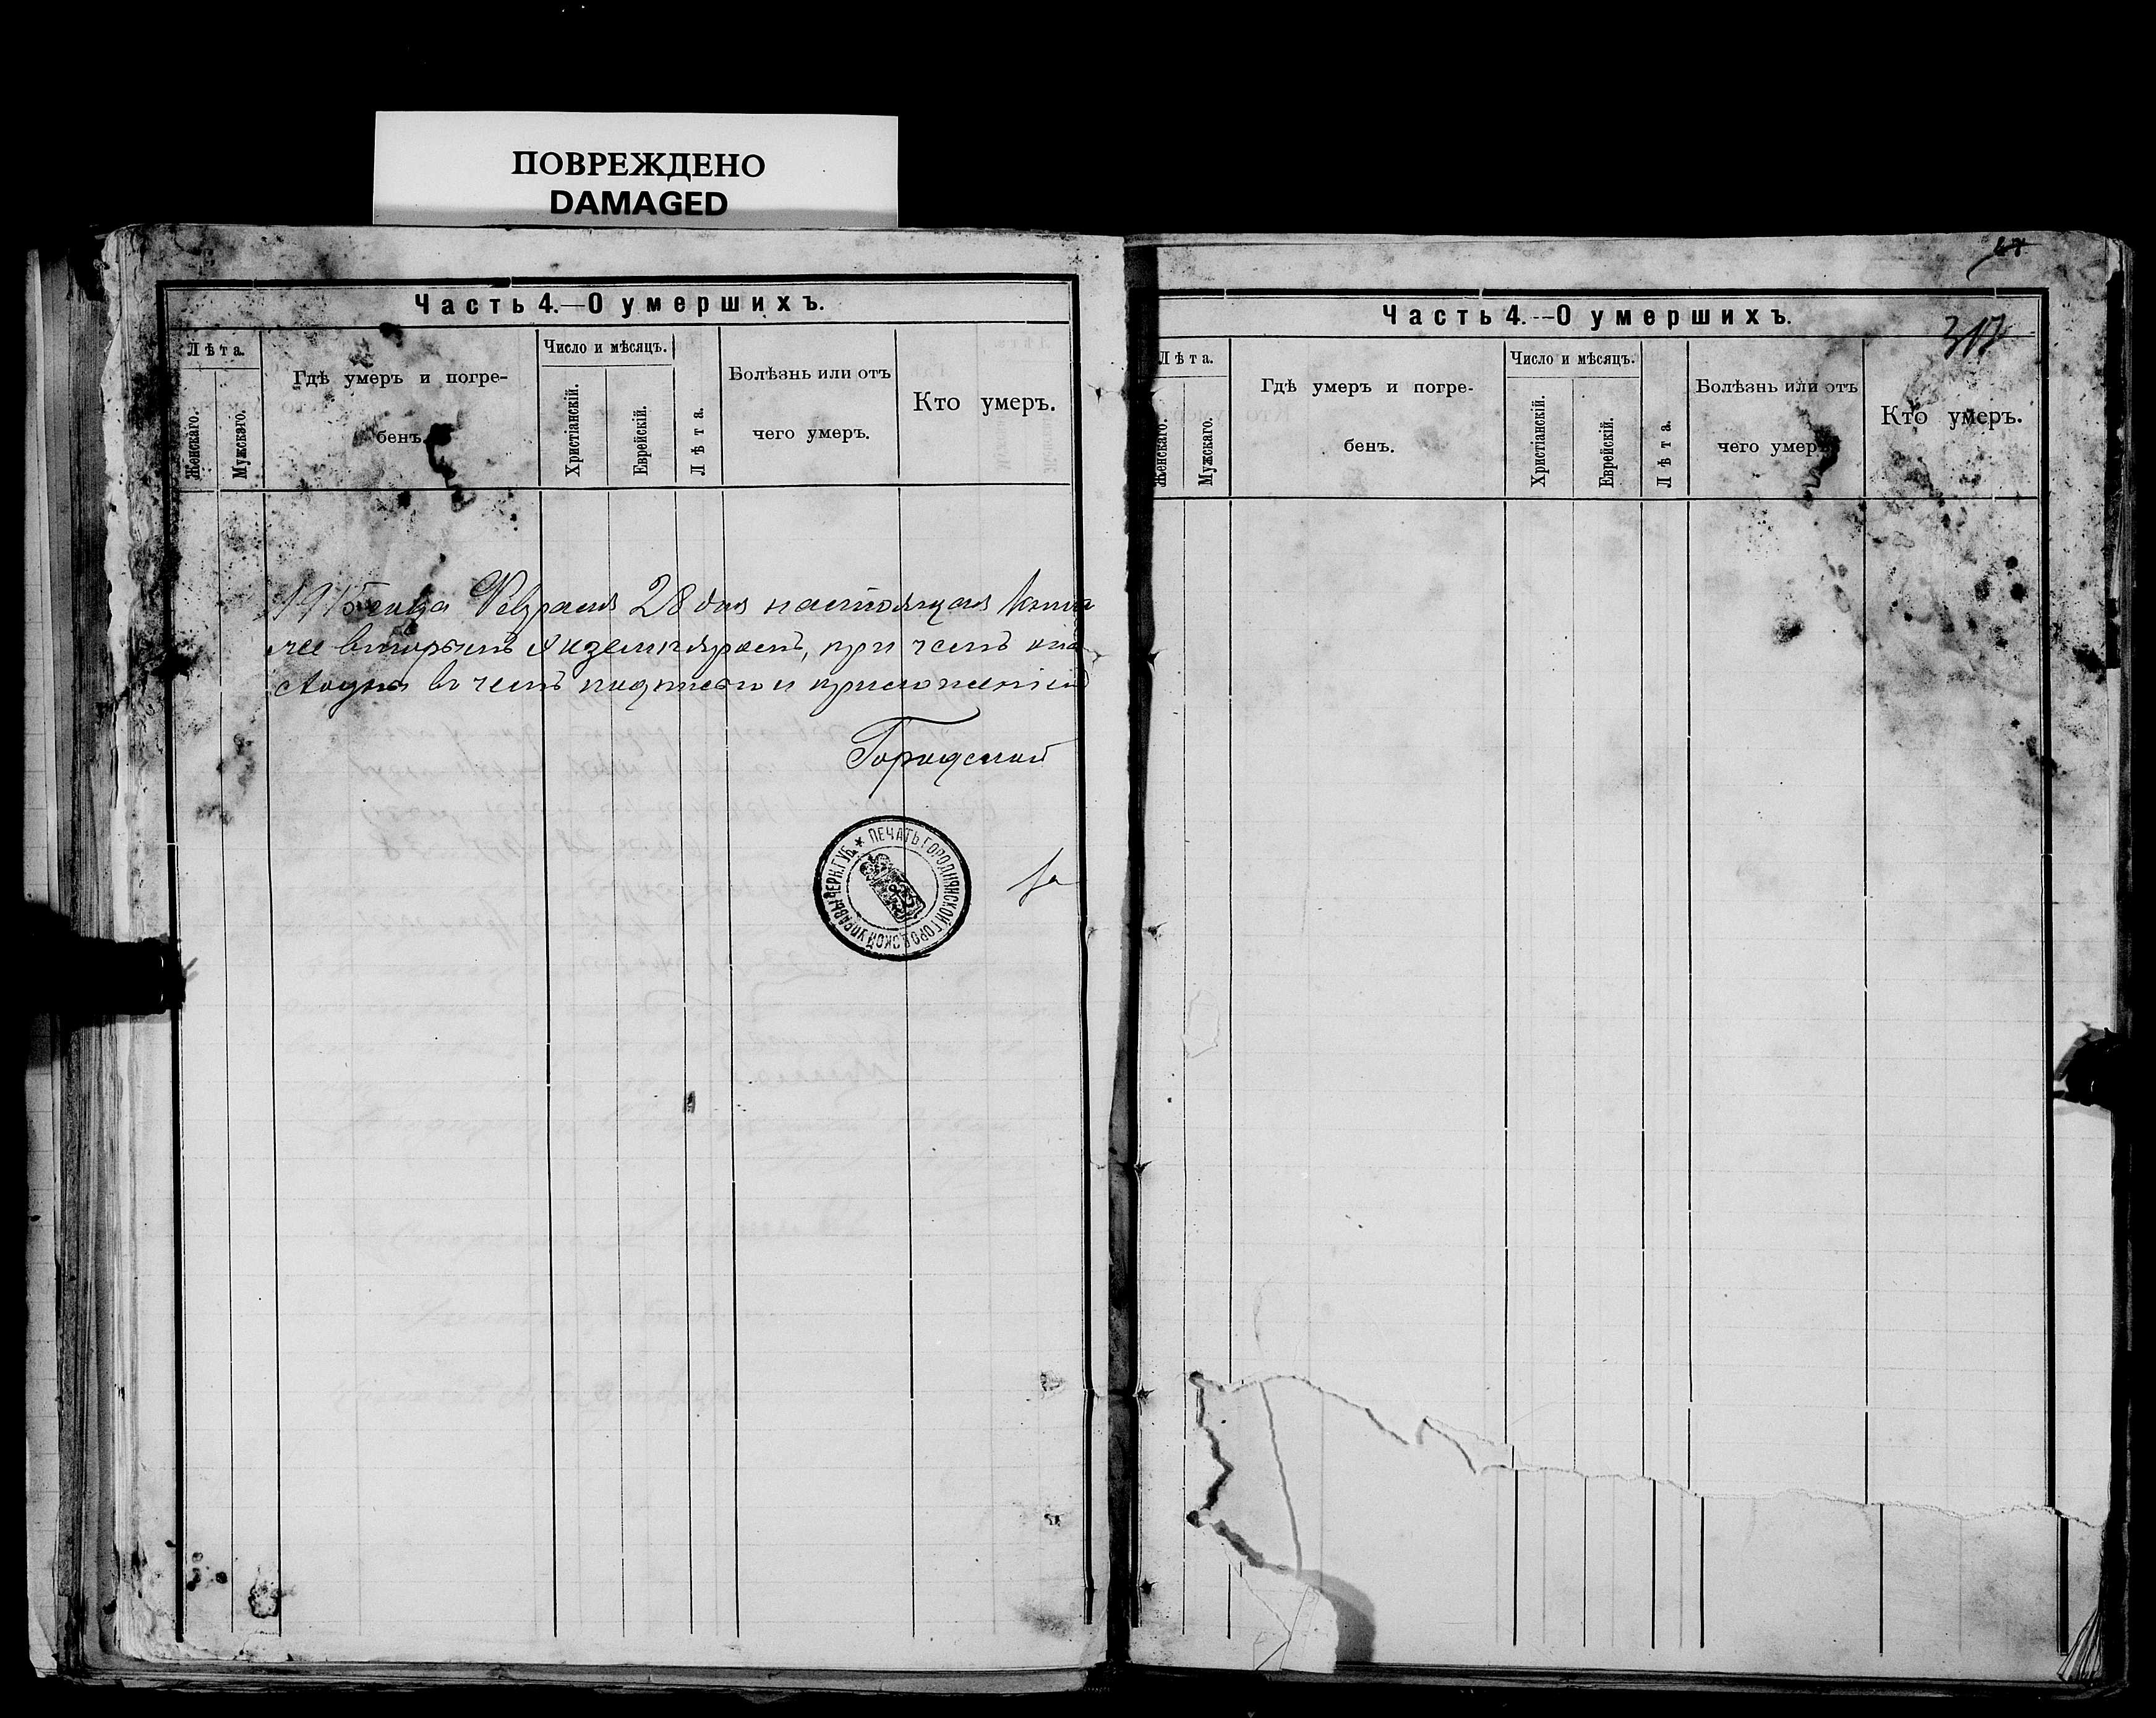 ПОВРЕЖДЕНО
DAMAGED
Часть 4.—О умершихъ.
Лѣта.
Женскаго.
Мужскаго.
Гдѣ умеръ и погре-
бенъ.
Число и мѣсяцъ.
Христіанскій.
Еврейскій.
Лѣта.
Болѣзнь или отъ
чего умеръ.
Кто умеръ.
1915 года Февраля 28 дня настоящая книга
вторымъ экземпляромъ, при чемъ
въ чемъ подписью и приложеніемъ
Городской
★ ПЕЧАТЬ ГОРОДНЯНСКОЙ ГОРОДСКОЙ УПРАВЫ ЧЕРН. ГУБ.
317
Часть 4.—О умершихъ.
Лѣта.
Женскаго.
Мужскаго.
Гдѣ умеръ и погре-
бенъ.
Число и мѣсяцъ.
Христіанскій.
Еврейскій.
Лѣта.
Болѣзнь или отъ
чего умеръ.
Кто умеръ.